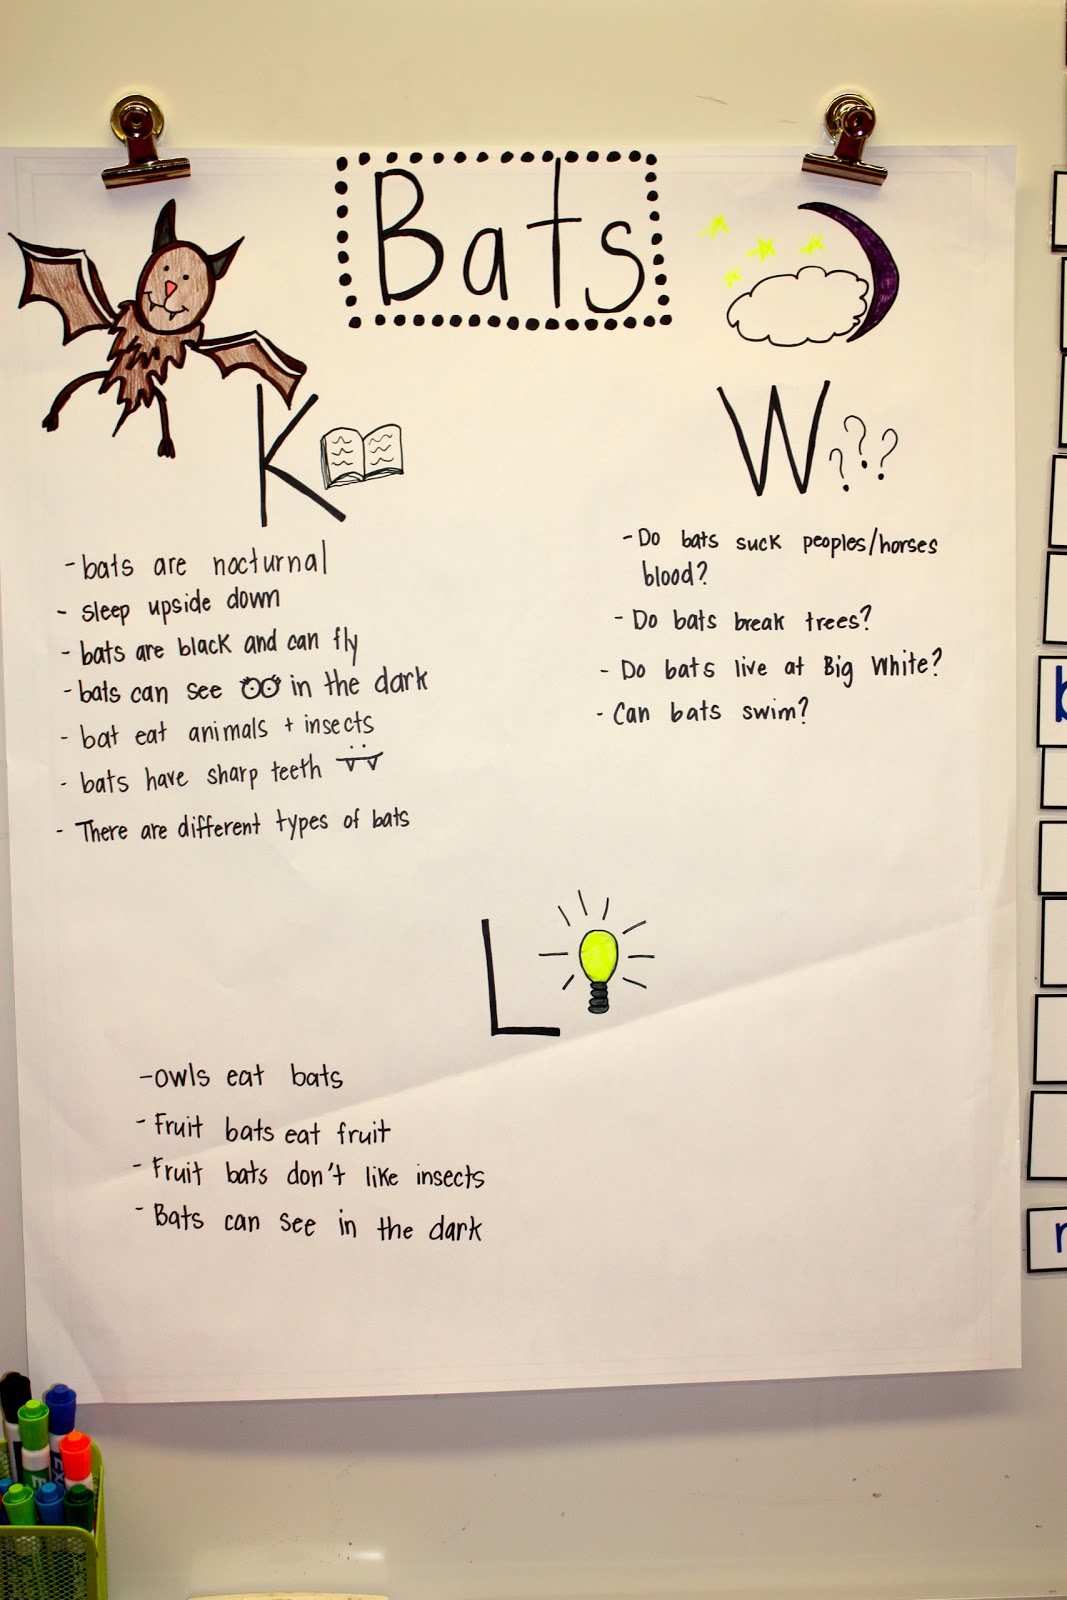 Bats
K
- bats are nocturnal
- sleep upside down
- bats are black and can fly
- bats can see in the dark
- bat eat animals + insects
- bats have sharp teeth
- There are different types of bats
W ???
- Do bats suck peoples/horses
blood?
- Do bats break trees?
- Do bats live at Big White?
- Can bats swim?
L
- owls eat bats
- Fruit bats eat fruit
- Fruit bats don't like insects
- Bats can see in the dark